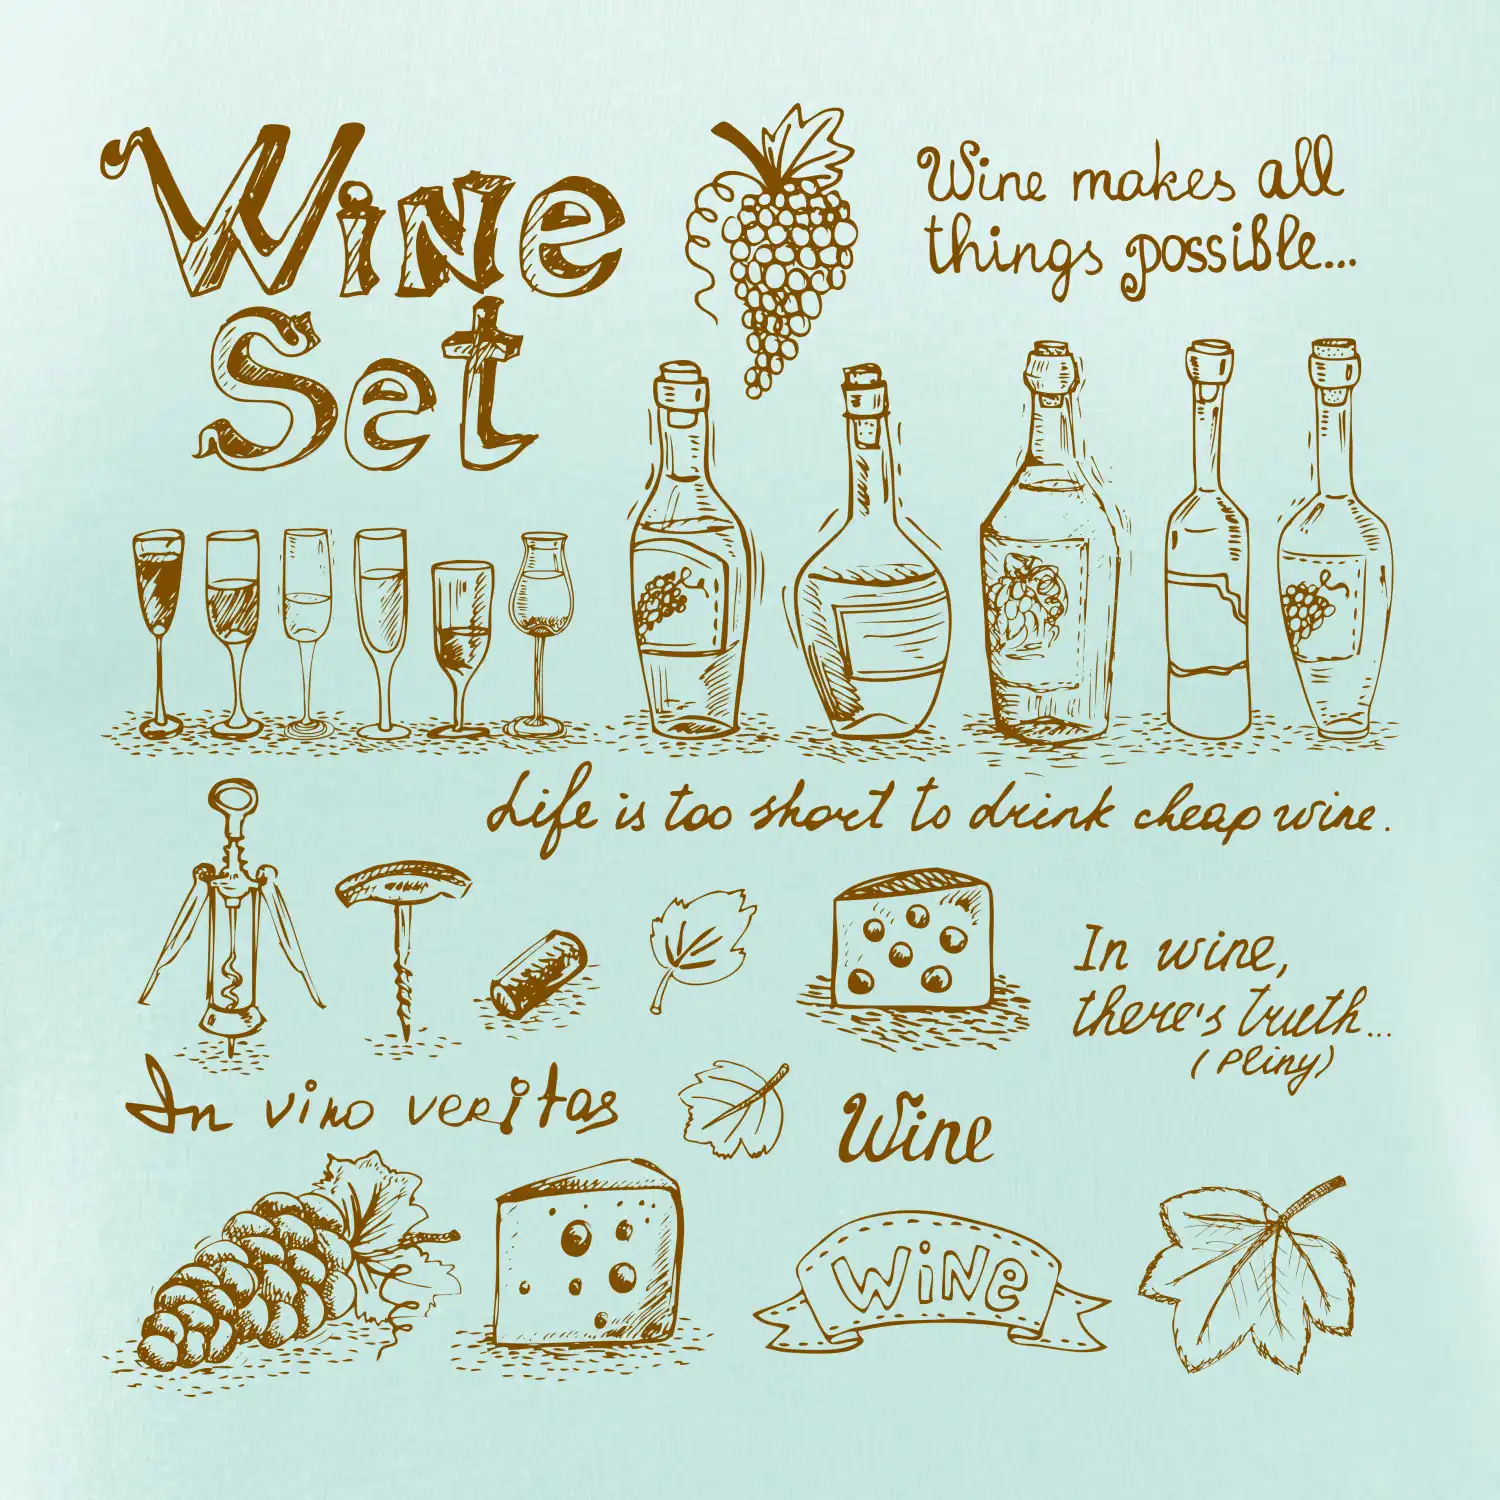 Wine
Set
Wine makes all
things possible...
Life is too short to drink cheap wine.
In wine,
there's truth...
(Pliny)
In vino veritas
Wine
Wine